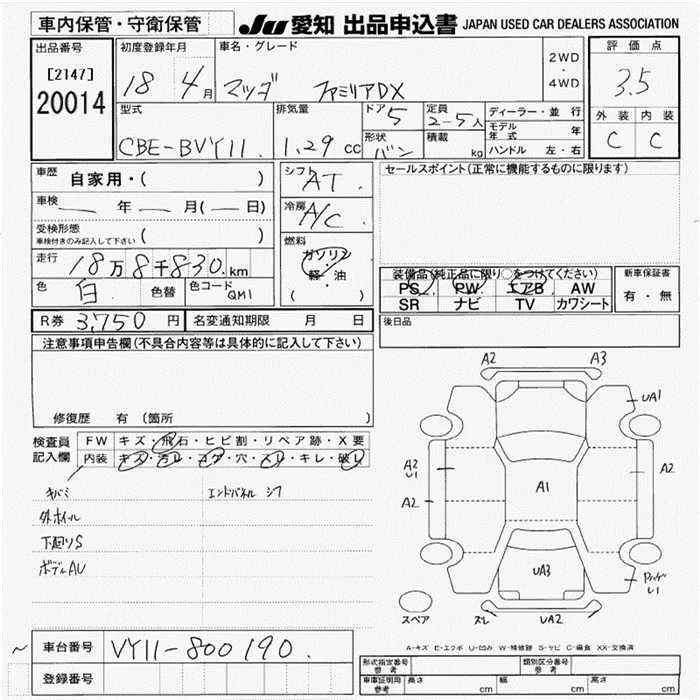 車内保管・守衛保管
JU 愛知 出品申込書 JAPAN USED CAR DEALERS ASSOCIATION
出品番号 初度登録年月 車名・グレード 2WD・4WD 評価点
[2147] 18 4月 マツダ ファミリアDX 3.5
20014
型式 排気量 ドア 5 定員 2-5人 ディーラー・並行 外装 内装
CBE-BVY11 1.29cc 形状 バン 積載 kg モデル年式 年 C C
ハンドル 左・右
車歴 自家用・( ) シフト AT セールスポイント(正常に機能するものに限ります)
車検 年 月( 日) 冷房 A/C
受検形態 車検付きのみ記入して下さい ( )
燃料 ガソリン
軽・油
( )
走行 18万8千830km
色 白 色替 色コード QM1
装備品(純正品に限り○をつけてください) 新車保証書
PS PW エアB AW 有・無
SR ナビ TV カワシート
R券 3,750円 名変通知期限 月 日 後日品
注意事項申告欄(不具合内容等は具体的に記入して下さい)
修復歴 有 (箇所 )
検査員記入欄 FW キズ・飛石・ヒビ割・リペア跡・X要
内装 キズ・汚レ・コゲ・穴・スレ・キレ・破レ
キバミ エンドパネル シワ
外ホイール
下廻りS
ボデーAU
A2 A3
UA1
A2
U1
A2
A1
A2
UA3
UA2
スペア
A-キズ E-エクボ U-凹み W-補修跡 S-サビ C-腐食 XX-交換済
車台番号 VY11-800190
登録番号
形式指定番号 参考 類別区分番号 参考
車庫証明用 参考 長さ cm 幅 cm 高さ cm